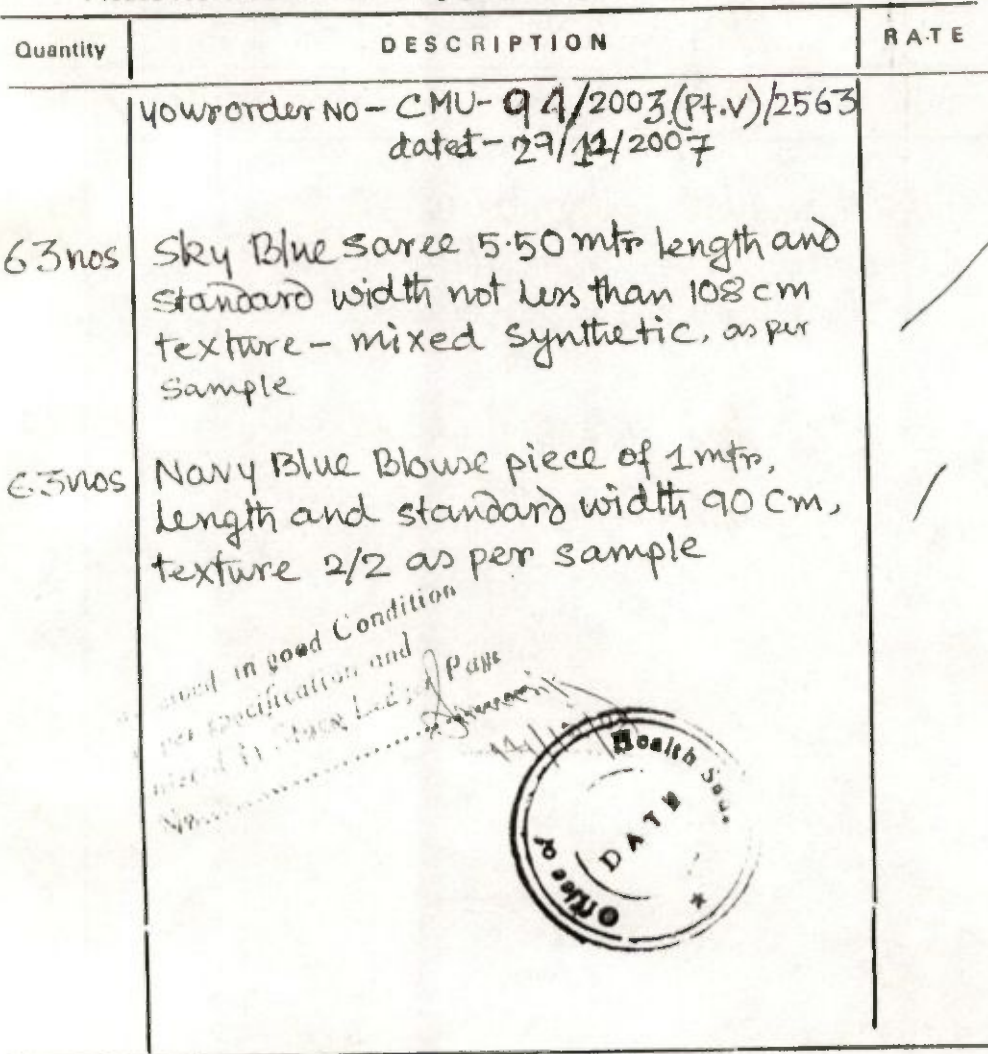 Quantity DESCRIPTION RATE
Your order No - CMU- 94/2003 (Pt.V)/2563
dated - 27/11/2007
63nos Sky Blue saree 5.50 mtr length and
standard width not less than 108 cm
texture - mixed synthetic, as per
sample
63nos Navy Blue Blouse piece of 1mtr,
length and standard width 90 cm,
texture 2/2 as per sample
in good Condition
per specification and
Page
No...............
Office of Health
DATE